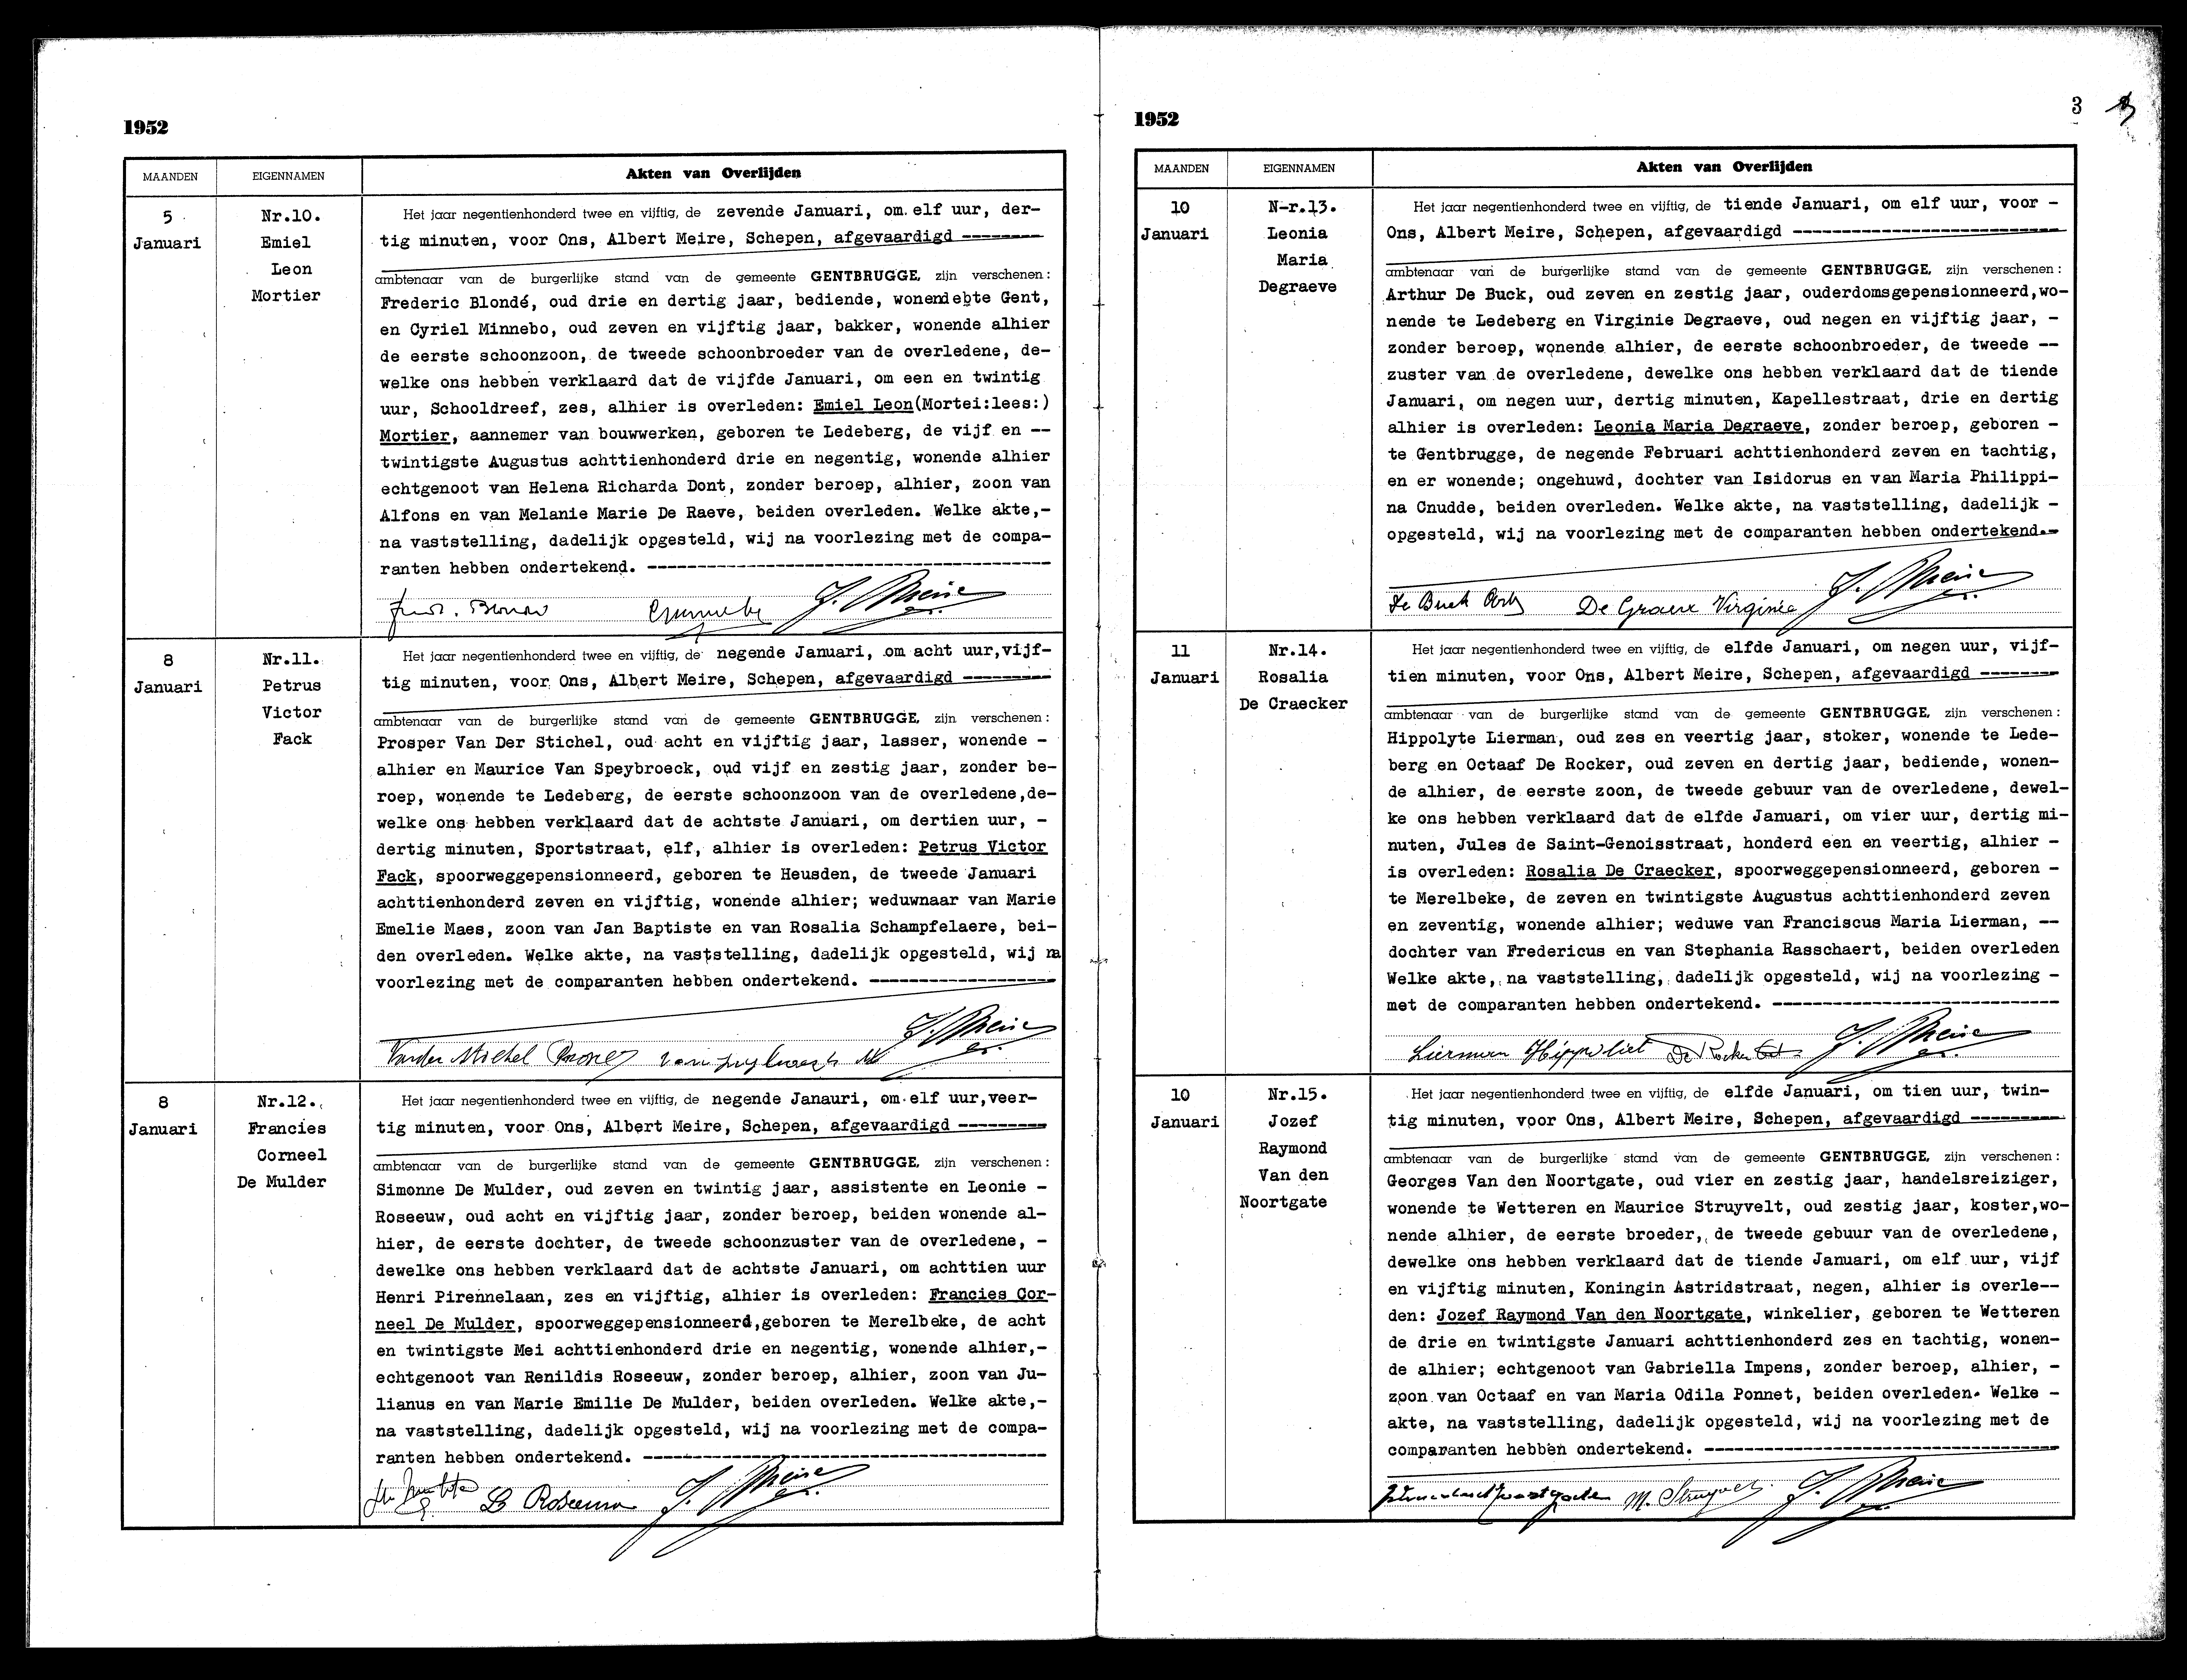 1952
MAANDEN
EIGENNAMEN
Akten van Overlijden
5
Januari
Nr.10.
Emiel
Leon
Mortier
Het jaar negentienhonderd twee en vijftig, de zevende Januari, om elf uur, der-
tig minuten, voor Ons, Albert Meire, Schepen, afgevaardigd --------
ambtenaar van de burgerlijke stand van de gemeente GENTBRUGGE, zijn verschenen:
Frederic Blondé, oud drie en dertig jaar, bediende, wonende te Gent,
en Cyriel Minnebo, oud zeven en vijftig jaar, bakker, wonende alhier
de eerste schoonzoon, de tweede schoonbroeder van de overledene, de-
welke ons hebben verklaard dat de vijfde Januari, om een en twintig
uur, Schooldreef, zes, alhier is overleden: Emiel Leon(Mortei:lees:)
Mortier, aannemer van bouwwerken, geboren te Ledeberg, de vijf en --
twintigste Augustus achttienhonderd drie en negentig, wonende alhier
echtgenoot van Helena Richarda Dont, zonder beroep, alhier, zoon van
Alfons en van Melanie Marie De Raeve, beiden overleden. Welke akte,-
na vaststelling, dadelijk opgesteld, wij na voorlezing met de compa-
ranten hebben ondertekend. ----------------------------------------
8
Januari
Nr.11.
Petrus
Victor
Fack
Het jaar negentienhonderd twee en vijftig, de negende Januari, om acht uur,vijf-
tig minuten, voor Ons, Albert Meire, Schepen, afgevaardigd ---------
ambtenaar van de burgerlijke stand van de gemeente GENTBRUGGE, zijn verschenen:
Prosper Van Der Stichel, oud acht en vijftig jaar, lasser, wonende -
alhier en Maurice Van Speybroeck, oud vijf en zestig jaar, zonder be-
roep, wonende te Ledeberg, de eerste schoonzoon van de overledene,de-
welke ons hebben verklaard dat de achtste Januari, om dertien uur, -
dertig minuten, Sportstraat, elf, alhier is overleden: Petrus Victor
Fack, spoorweggepensionneerd, geboren te Heusden, de tweede Januari
achttienhonderd zeven en vijftig, wonende alhier; weduwnaar van Marie
Emelie Maes, zoon van Jan Baptiste en van Rosalia Schampfelaere, bei-
den overleden. Welke akte, na vaststelling, dadelijk opgesteld, wij na
voorlezing met de comparanten hebben ondertekend. ------------------
8
Januari
Nr.12.
Francies
Corneel
De Mulder
Het jaar negentienhonderd twee en vijftig, de negende Janauri, om elf uur,veer-
tig minuten, voor Ons, Albert Meire, Schepen, afgevaardigd ---------
ambtenaar van de burgerlijke stand van de gemeente GENTBRUGGE, zijn verschenen:
Simonne De Mulder, oud zeven en twintig jaar, assistente en Leonie -
Roseeuw, oud acht en vijftig jaar, zonder beroep, beiden wonende al-
hier, de eerste dochter, de tweede schoonzuster van de overledene, -
dewelke ons hebben verklaard dat de achtste Januari, om achttien uur
Henri Pirennelaan, zes en vijftig, alhier is overleden: Francies Cor-
neel De Mulder, spoorweggepensionneerd,geboren te Merelbeke, de acht
en twintigste Mei achttienhonderd drie en negentig, wonende alhier,-
echtgenoot van Renildis Roseeuw, zonder beroep, alhier, zoon van Ju-
lianus en van Marie Emilie De Mulder, beiden overleden. Welke akte,-
na vaststelling, dadelijk opgesteld, wij na voorlezing met de compa-
ranten hebben ondertekend. ----------------------------------------
L Roseeuw
1952
3
MAANDEN
EIGENNAMEN
Akten van Overlijden
10
Januari
N-r.13.
Leonia
Maria
Degraeve
Het jaar negentienhonderd twee en vijftig, de tiende Januari, om elf uur, voor -
Ons, Albert Meire, Schepen, afgevaardigd ---------------------------
ambtenaar van de burgerlijke stand van de gemeente GENTBRUGGE, zijn verschenen:
Arthur De Buck, oud zeven en zestig jaar, ouderdomsgepensionneerd,wo-
nende te Ledeberg en Virginie Degraeve, oud negen en vijftig jaar, -
zonder beroep, wonende alhier, de eerste schoonbroeder, de tweede --
zuster van de overledene, dewelke ons hebben verklaard dat de tiende
Januari, om negen uur, dertig minuten, Kapellestraat, drie en dertig
alhier is overleden: Leonia Maria Degraeve, zonder beroep, geboren -
te Gentbrugge, de negende Februari achttienhonderd zeven en tachtig,
en er wonende; ongehuwd, dochter van Isidorus en van Maria Philippi-
na Cnudde, beiden overleden. Welke akte, na vaststelling, dadelijk -
opgesteld, wij na voorlezing met de comparanten hebben ondertekend.-
De Buck De Graeve Virginie
11
Januari
Nr.14.
Rosalia
De Craecker
Het jaar negentienhonderd twee en vijftig, de elfde Januari, om negen uur, vijf-
tien minuten, voor Ons, Albert Meire, Schepen, afgevaardigd --------
ambtenaar van de burgerlijke stand van de gemeente GENTBRUGGE, zijn verschenen:
Hippolyte Lierman, oud zes en veertig jaar, stoker, wonende te Lede-
berg en Octaaf De Rocker, oud zeven en dertig jaar, bediende, wonen-
de alhier, de eerste zoon, de tweede gebuur van de overledene, dewel-
ke ons hebben verklaard dat de elfde Januari, om vier uur, dertig mi-
nuten, Jules de Saint-Genoisstraat, honderd een en veertig, alhier -
is overleden: Rosalia De Craecker, spoorweggepensionneerd, geboren -
te Merelbeke, de zeven en twintigste Augustus achttienhonderd zeven
en zeventig, wonende alhier; weduwe van Franciscus Maria Lierman, --
dochter van Fredericus en van Stephania Rasschaert, beiden overleden
Welke akte, na vaststelling, dadelijk opgesteld, wij na voorlezing -
met de comparanten hebben ondertekend. ----------------------------
Lierman Hippoliet De Rocker
10
Januari
Nr.15.
Jozef
Raymond
Van den
Noortgate
Het jaar negentienhonderd twee en vijftig, de elfde Januari, om tien uur, twin-
tig minuten, voor Ons, Albert Meire, Schepen, afgevaardigd ---------
ambtenaar van de burgerlijke stand van de gemeente GENTBRUGGE, zijn verschenen:
Georges Van den Noortgate, oud vier en zestig jaar, handelsreiziger,
wonende te Wetteren en Maurice Struyvelt, oud zestig jaar, koster,wo-
nende alhier, de eerste broeder, de tweede gebuur van de overledene,
dewelke ons hebben verklaard dat de tiende Januari, om elf uur, vijf
en vijftig minuten, Koningin Astridstraat, negen, alhier is overle--
den: Jozef Raymond Van den Noortgate, winkelier, geboren te Wetteren
de drie en twintigste Januari achttienhonderd zes en tachtig, wonen-
de alhier; echtgenoot van Gabriella Impens, zonder beroep, alhier, -
zoon van Octaaf en van Maria Odila Ponnet, beiden overleden. Welke -
akte, na vaststelling, dadelijk opgesteld, wij na voorlezing met de
comparanten hebben ondertekend. -----------------------------------
M. Struyvelt